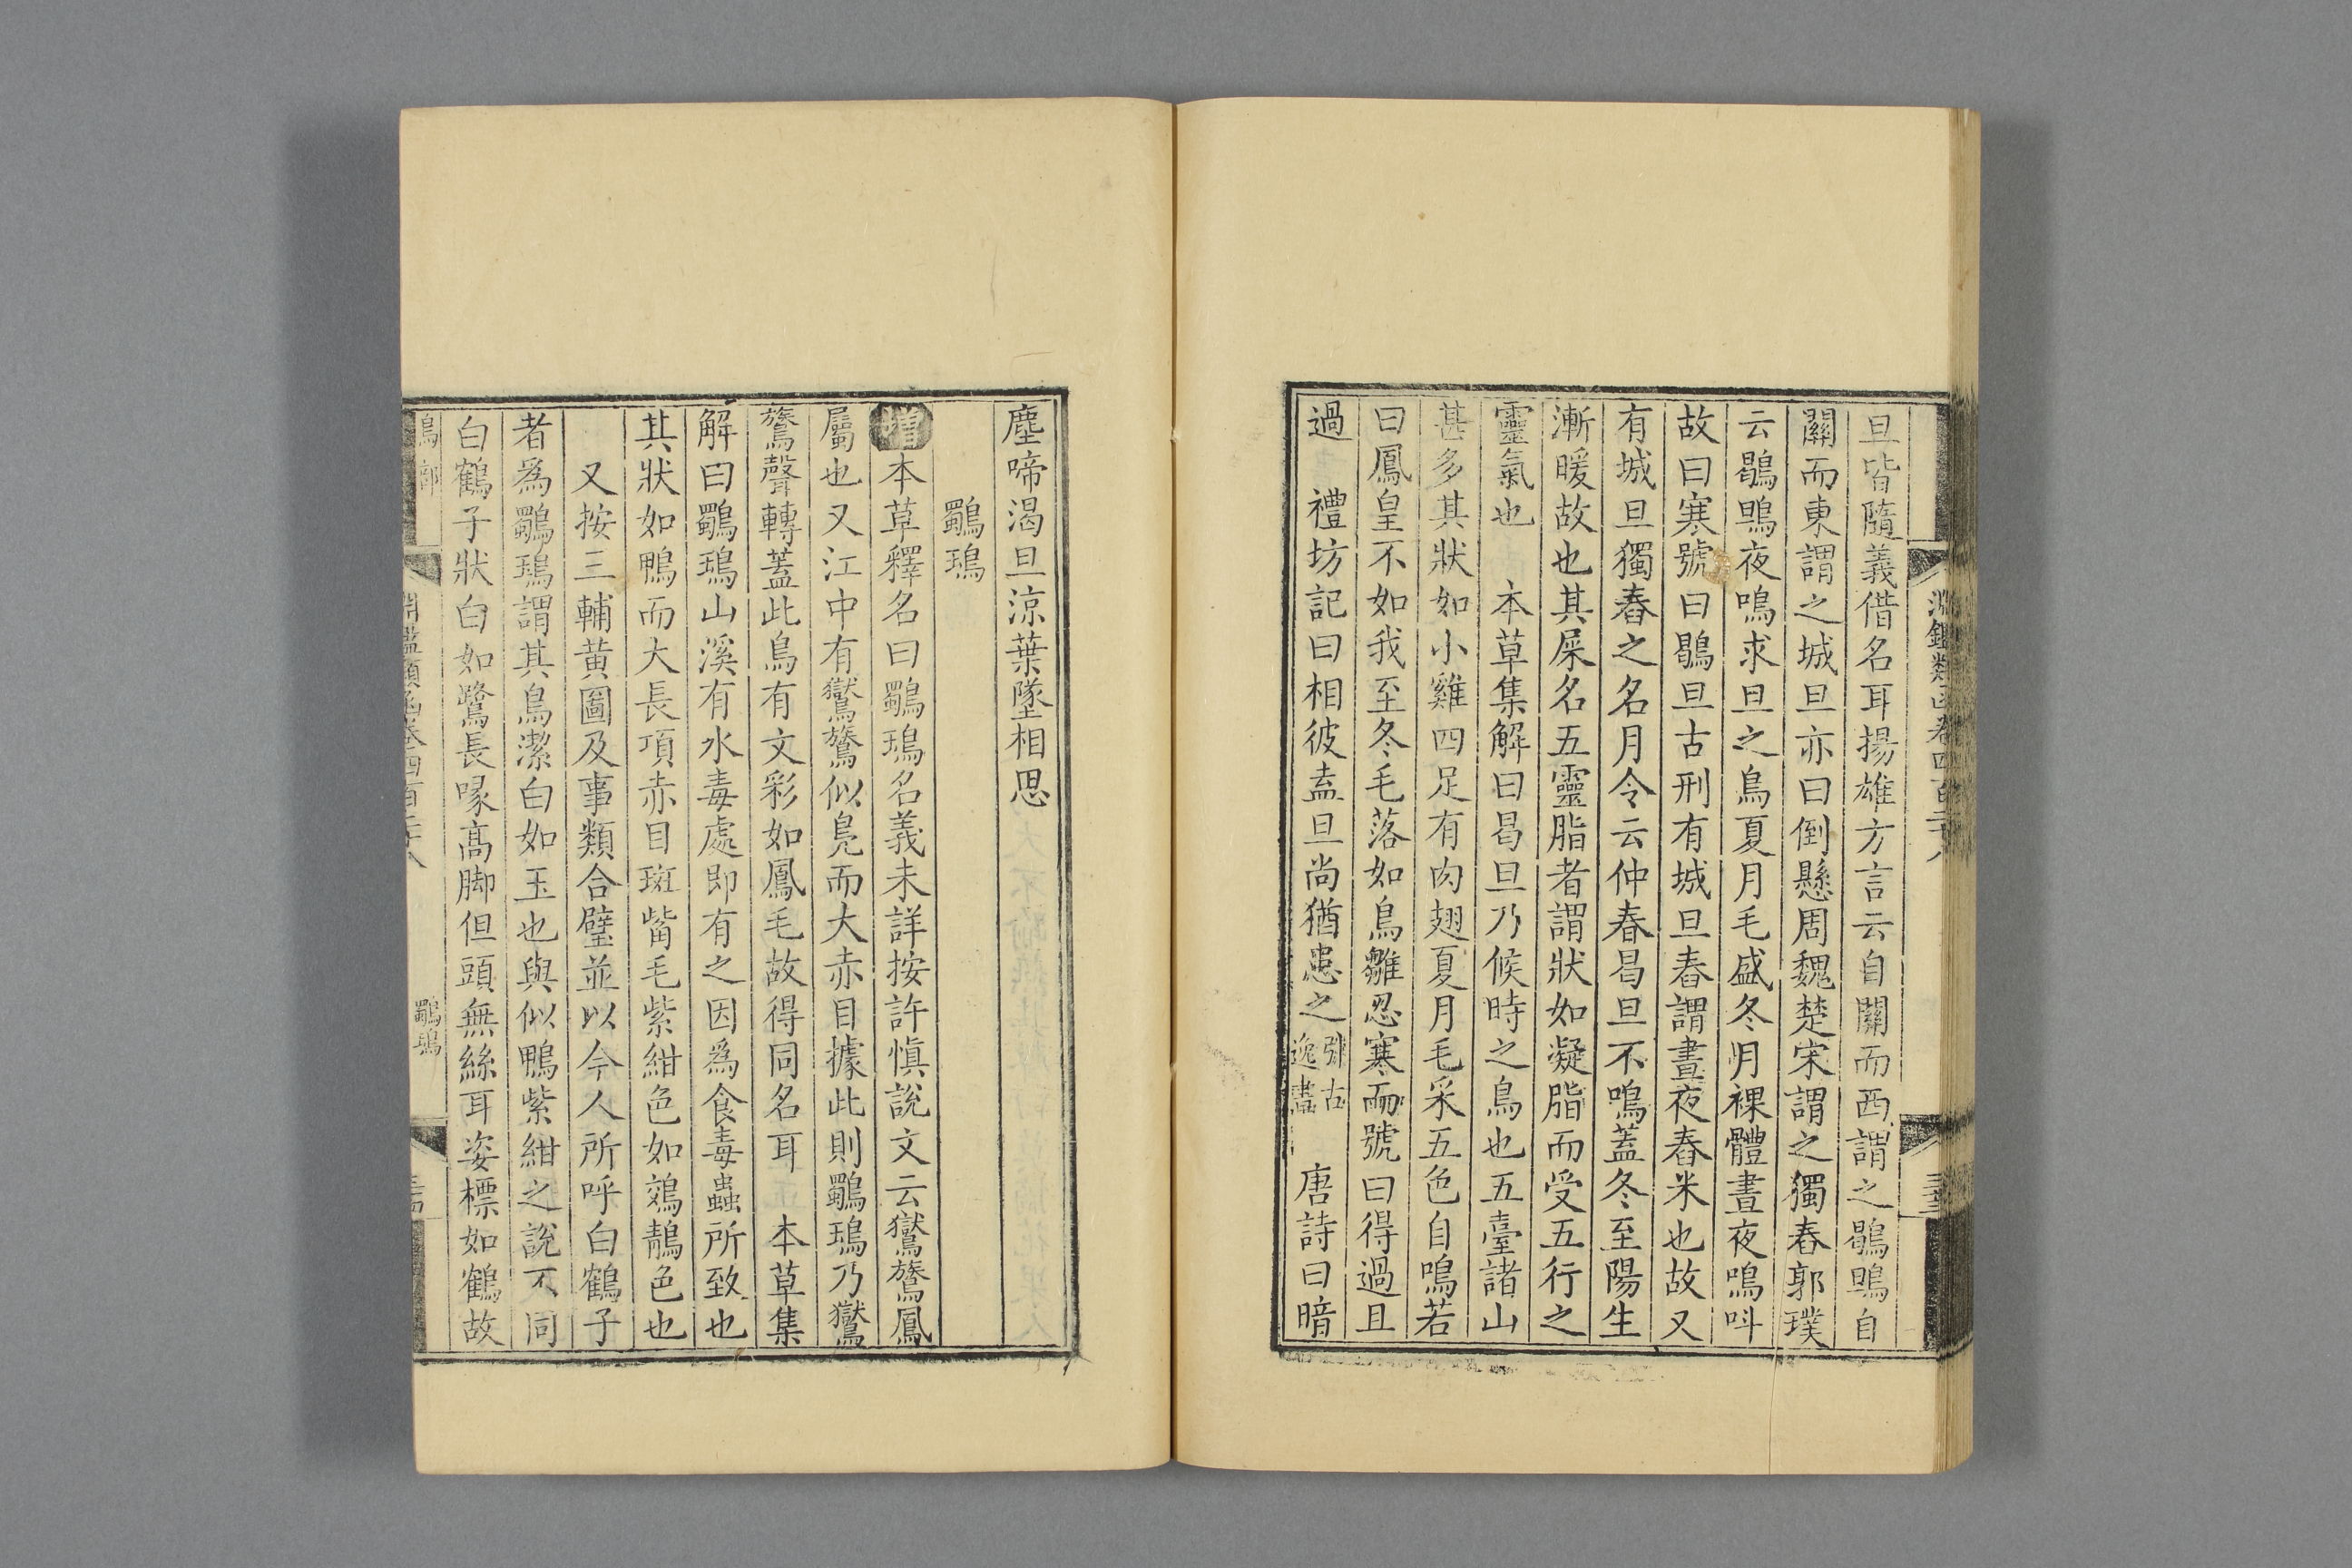 淵鑑類函卷四百二十八
三十三
旦皆隨義借名耳揚雄方言云自關而西謂之鶡鴠自
關而東謂之城旦亦曰倒懸周魏楚宋謂之獨舂郭璞
云鶡鴠夜鳴求旦之鳥夏月毛盛冬月裸體晝夜鳴叫
故曰寒號曰鶡旦古刑有城旦舂謂晝夜舂米也故又
有城旦獨舂之名月令云仲春曷旦不鳴蓋冬至陽生
漸暖故也其屎名五靈脂者謂狀如凝脂而受五行之
靈氣也　本草集解曰曷旦乃候時之鳥也五臺諸山
甚多其狀如小雞四足有肉翅夏月毛采五色自鳴若
曰鳳皇不如我至冬毛落如鳥雛忍寒而號曰得過且
過　禮坊記曰相彼盍旦尚猶患之張古逸書　唐詩曰暗
塵啼渴旦涼葉墜相思
鸀鳿
增本草釋名曰鸀鳿名義未詳按許慎說文云鸑鷟鳳
屬也又江中有鸑鷟似鳧而大赤目據此則鸀鳿乃鸑
鷟聲轉蓋此鳥有文彩如鳳毛故得同名耳　本草集
解曰鸀鳿山溪有水毒處即有之因爲食毒蟲所致也
其狀如鴨而大長項赤目斑觜毛紫紺色如鵁鶄色也
又按三輔黃圖及事類合璧並以今人所呼白鶴子
者爲鸀鳿謂其鳥潔白如玉也與似鴨紫紺之說不同
白鶴子狀白如鷺長喙高脚但頭無絲耳姿標如鶴故
鳥部
淵鑑類函卷四百二十八
鸀鳿
三十四